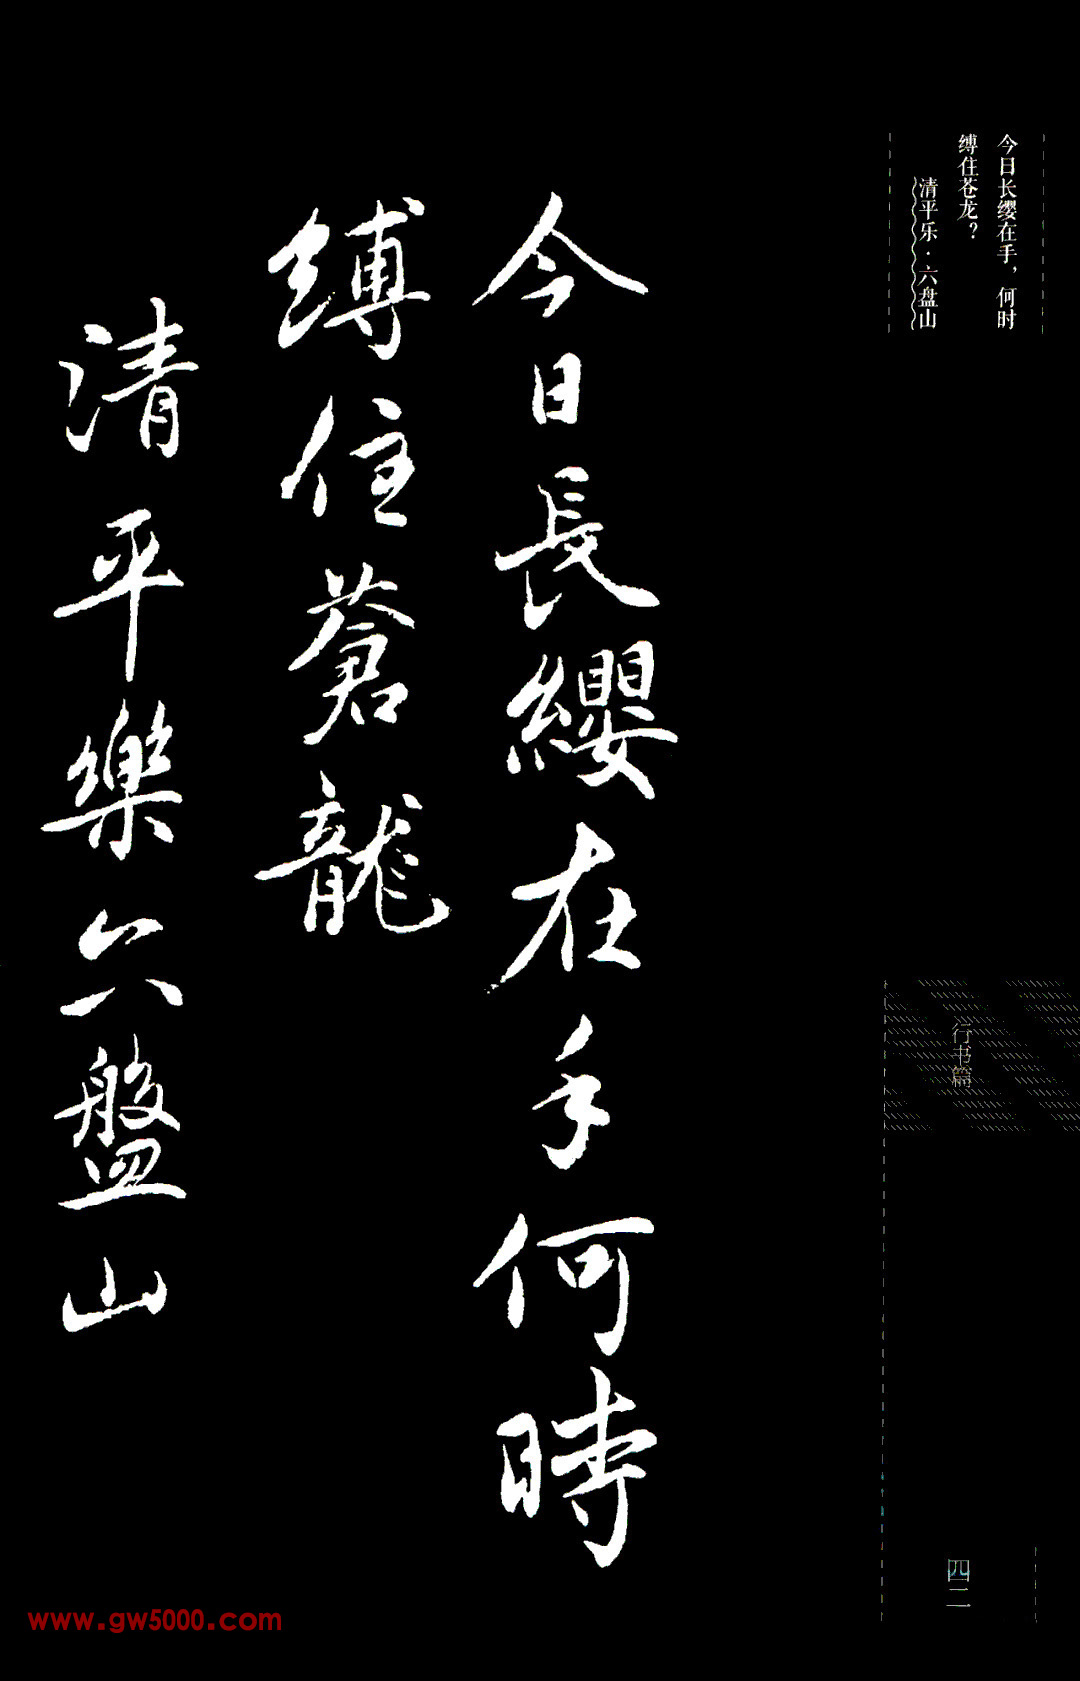 今日长缨在手，何时
缚住苍龙？
清平乐·六盘山
今日長纓在手何時
縛住蒼龍
清平樂六盤山
行书篇
四二
www.gw5000.com